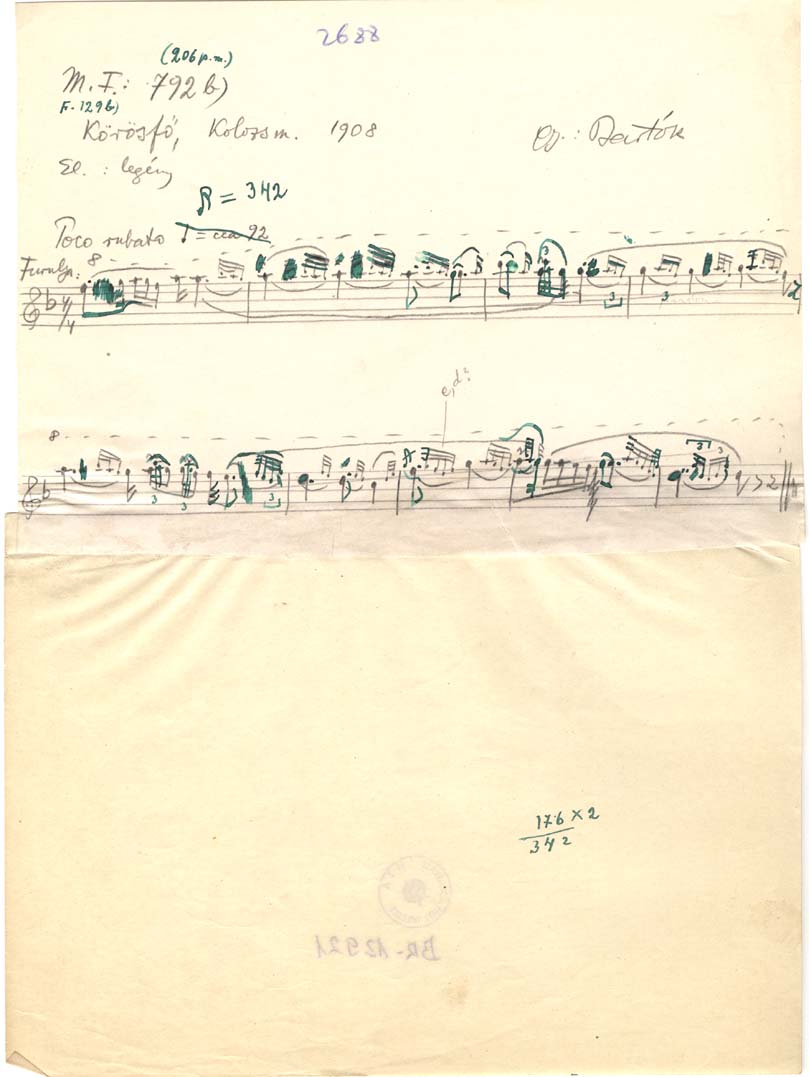 2688
(206 p.m.)
M.F.: 792 b)
F. 129 b)
Körösfő, Kolozsm. 1908
Gy.: Bartók
El.: legény
= 342
Poco rubato = cca 92
Furulya: 8
4/4
3
3
3
e, d?
8
3
3
3
3
3
176 x 2
342
BR-12921